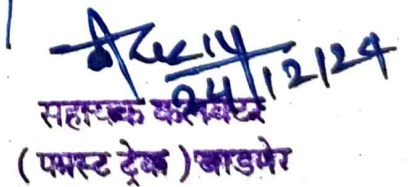 24/12/24
सहायक कलक्टर
(फास्ट ट्रेक) बाडमेर